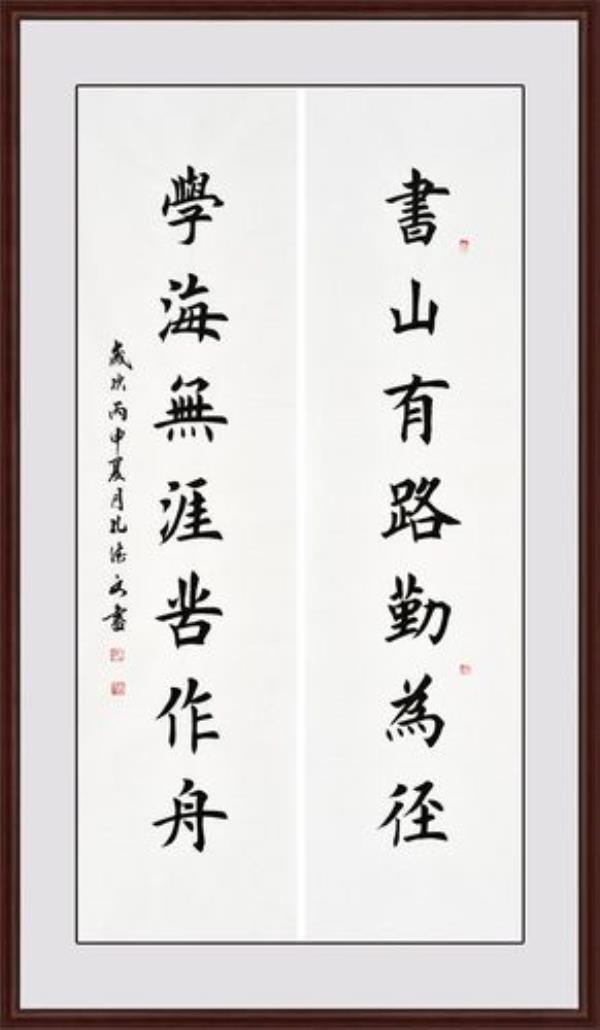 書山有路勤為径
學海無涯苦作舟
歲次丙申夏月孔德文書